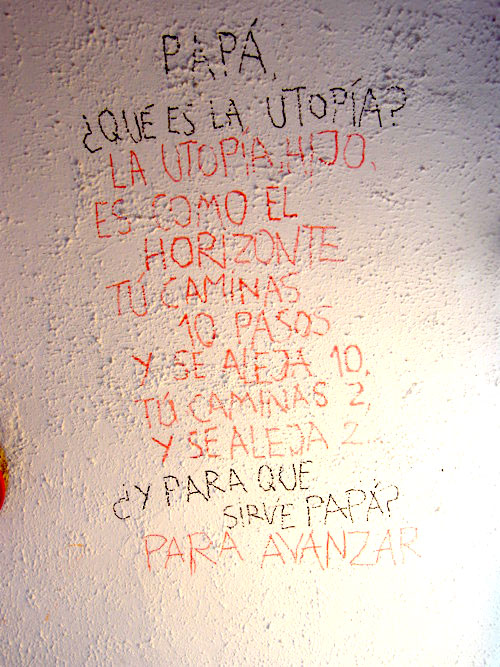 PAPÁ,
¿QUÉ ES LA UTOPÍA?
LA UTOPÍA, HIJO,
ES COMO EL
HORIZONTE
TÚ CAMINAS
10 PASOS
Y SE ALEJA 10.
TÚ CAMINAS 2,
Y SE ALEJA 2...
¿Y PARA QUE
SIRVE PAPÁ?
PARA AVANZAR